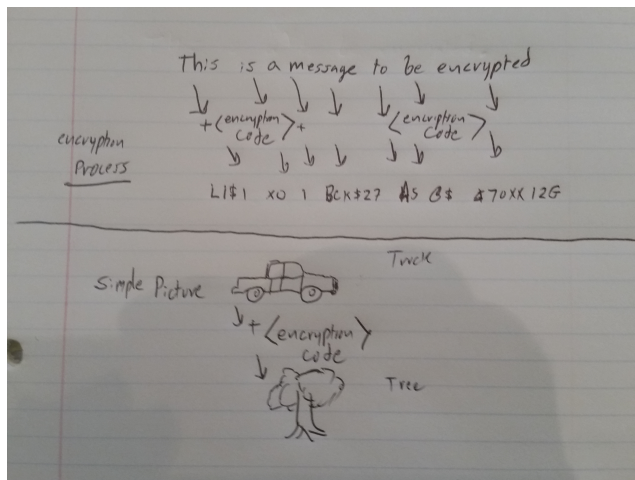 This is a message to be encrypted
+ <encryption code> +
<encription code>
encryption Process
LI$1 XO 1 BCK$27 AS B$ &70XX12G
Truck
Simple Picture
+ <encryption code>
Tree